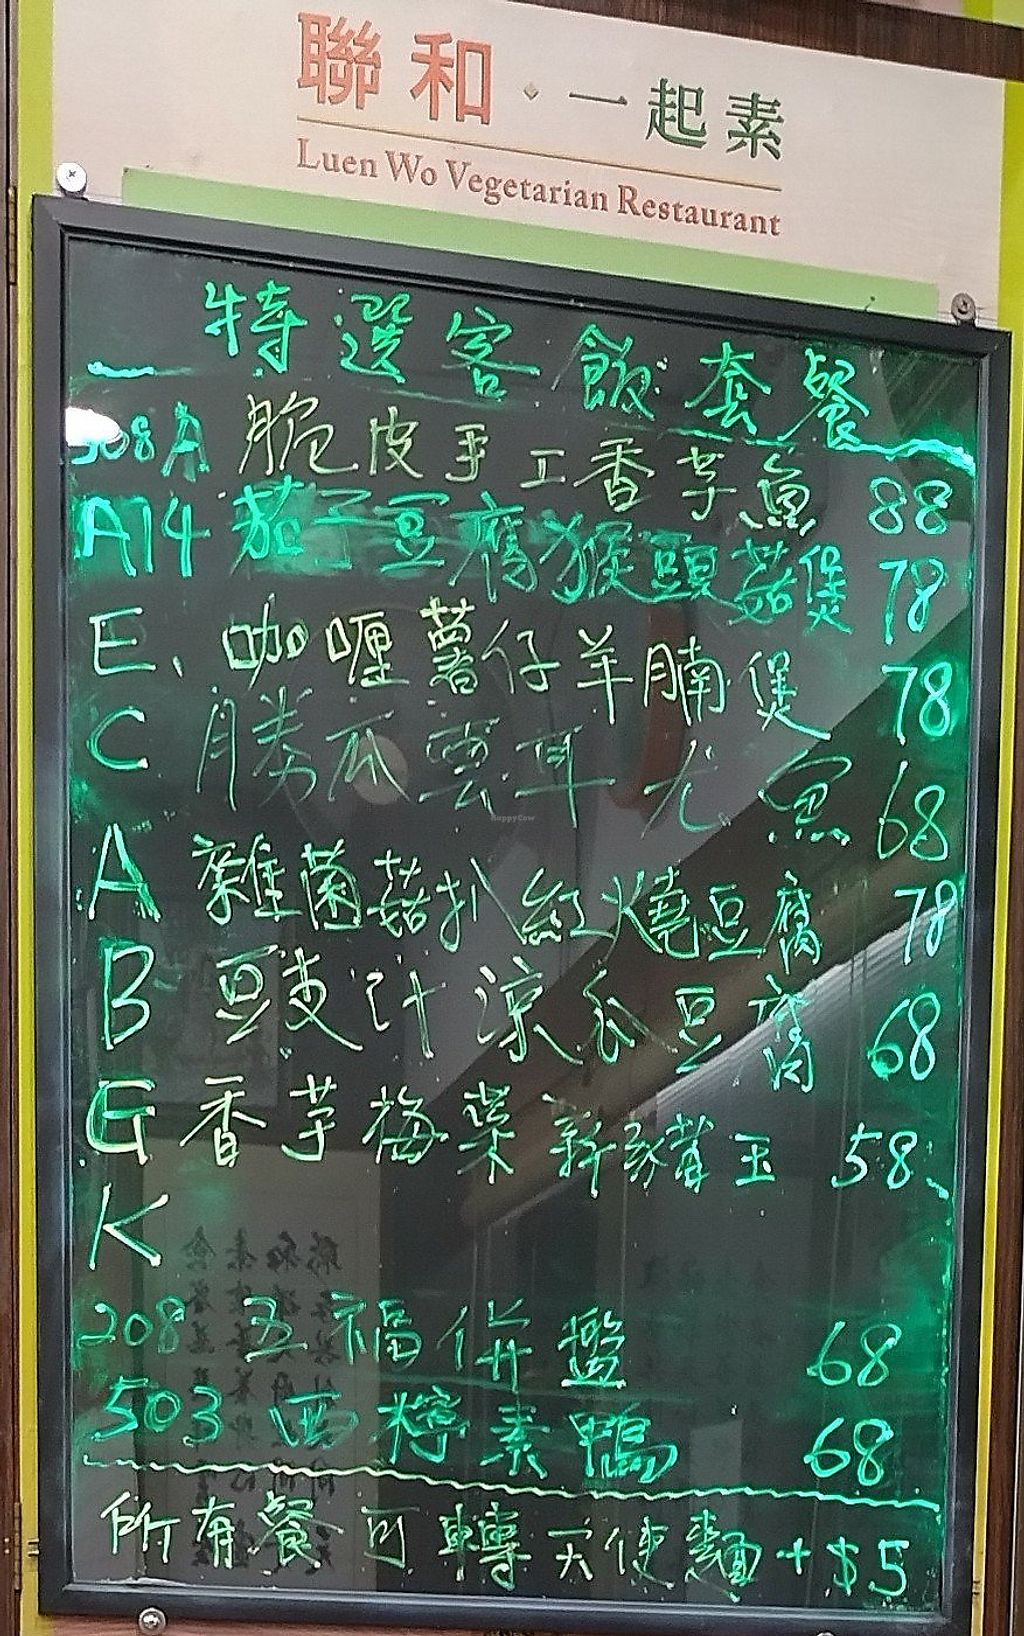 聯和·一起素
Luen Wo Vegetarian Restaurant
特選客飯套餐
308A 脆皮手工香芋魚 88
A14 茄子豆腐猴頭菇煲 78
E、咖喱薯仔羊腩煲 78
C 勝瓜雲耳尤魚 68
A 雜菌菇扒紅燒豆腐 78
B 豆支汁涼瓜豆腐 68
G 香芋梅菜新豬 玉 58
K
208 五福併盤 68
503 西檸素鴨 68
所有餐可轉天使麵+$5
HappyCow